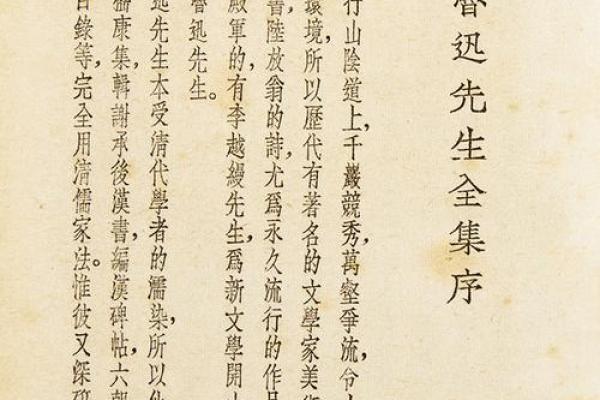 魯迅先生全集序
行山陰道上，千巖競秀，萬壑爭流，令
環境，所以歷代有著名的文學家美術
書，陸放翁的詩，尤爲永久流行的作品
殿軍的，有李越縵先生，爲新文學開
魯迅先生。
迅先生本受清代學者的濡染，所以他
嵇康集，輯謝承後漢書，編漢碑帖，六朝
目錄等，完全用清儒家法。惟彼又深研